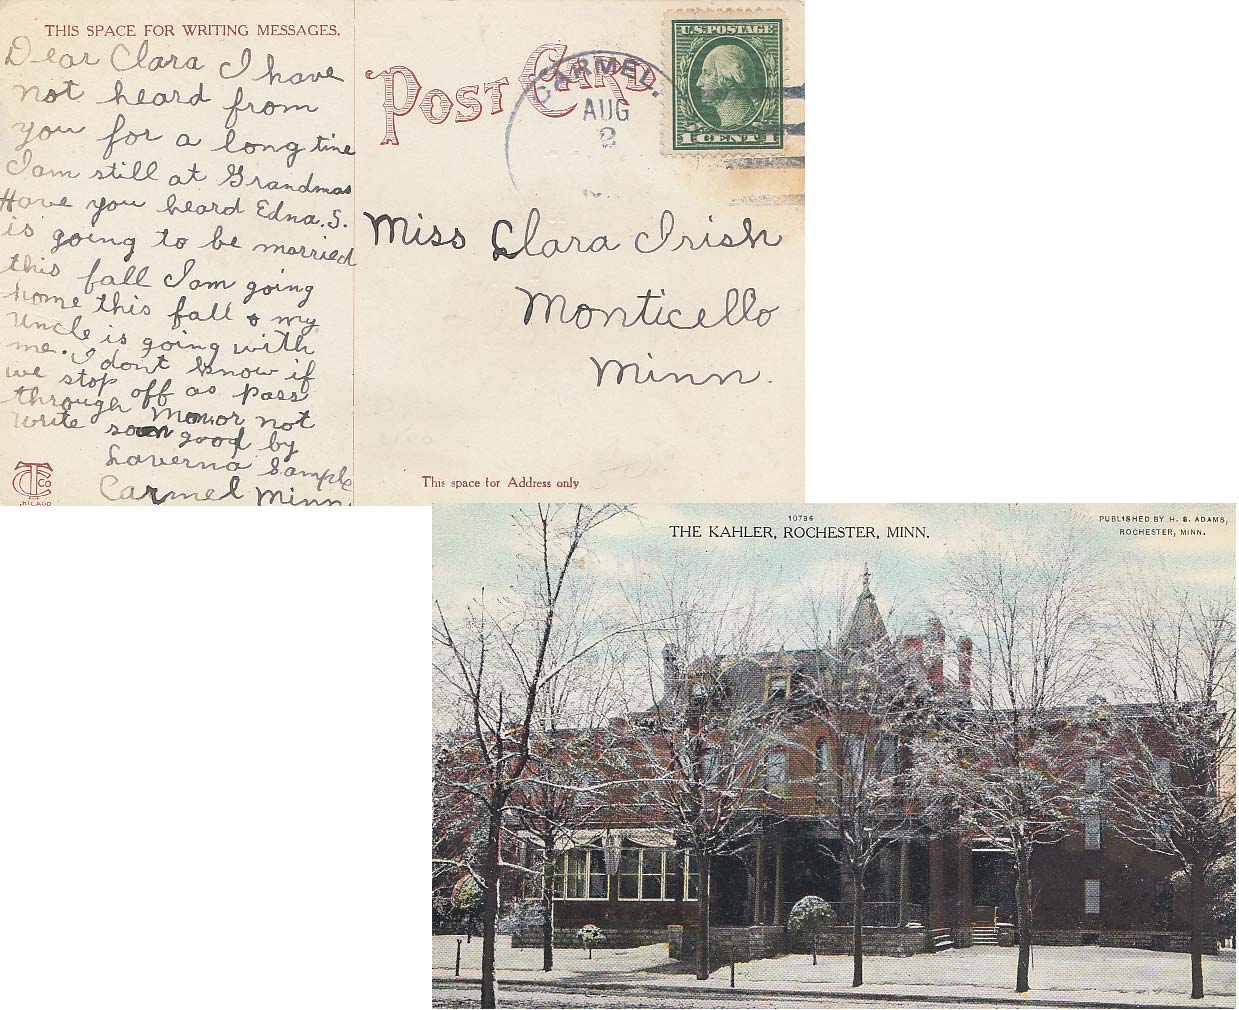 THIS SPACE FOR WRITING MESSAGES.
Dear Clara I have
not heard from
you for a long time
I am still at Grandmas
Have you heard Edna. S.
is going to be married
this fall I am going
home this fall & my
Uncle is going with
me. I dont know if
we stop off as pass
through Mon. or not
write soon good by
Laverna Sample
Carmel Minn
TC Co
CHICAGO
POST CARD
CARMEL.
AUG
2
U.S. POSTAGE
1 CENT 1
Miss Clara Irish
Monticello
Minn.
This space for Address only
10786
THE KAHLER, ROCHESTER, MINN.
PUBLISHED BY H. S. ADAMS,
ROCHESTER, MINN.